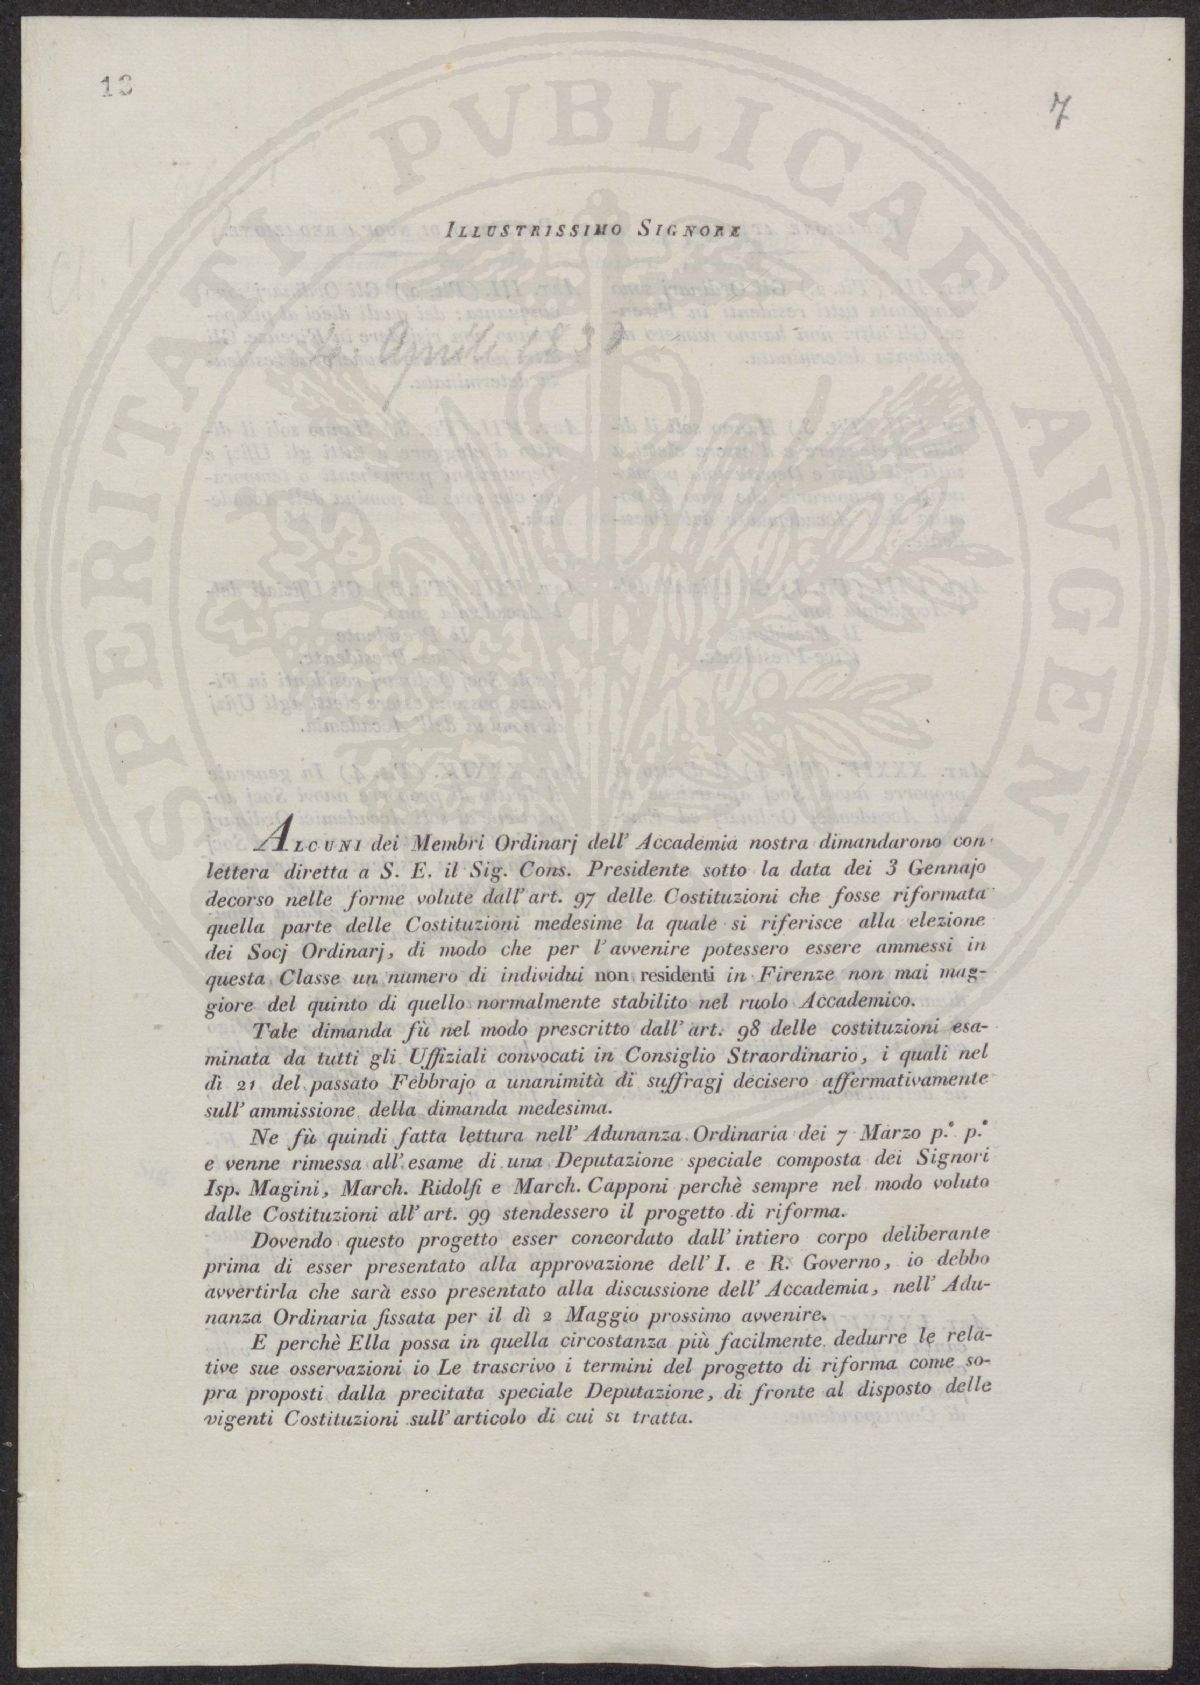 13
7
PVBLICAE
SPERITATI
AVGENDAE
ILLUSTRISSIMO SIGNORE
Aprile 1830
ALCUNI dei Membri Ordinarj dell' Accademia nostra dimandarono con
lettera diretta a S. E. il Sig. Cons. Presidente sotto la data dei 3 Gennajo
decorso nelle forme volute dall' art. 97 delle Costituzioni che fosse riformata
quella parte delle Costituzioni medesime la quale si riferisce alla elezione
dei Socj Ordinarj, di modo che per l' avvenire potessero essere ammessi in
questa Classe un numero di individui non residenti in Firenze non mai mag-
giore del quinto di quello normalmente stabilito nel ruolo Accademico.
Tale dimanda fù nel modo prescritto dall' art. 98 delle costituzioni esa-
minata da tutti gli Uffiziali convocati in Consiglio Straordinario, i quali nel
dì 21 del passato Febbrajo a unanimità di suffragj decisero affermativamente
sull' ammissione della dimanda medesima.
Ne fù quindi fatta lettura nell' Adunanza Ordinaria dei 7 Marzo p.° p.°
e venne rimessa all' esame di una Deputazione speciale composta dei Signori
Isp. Magini, March. Ridolfi e March. Capponi perchè sempre nel modo voluto
dalle Costituzioni all' art. 99 stendessero il progetto di riforma.
Dovendo questo progetto esser concordato dall' intiero corpo deliberante
prima di esser presentato alla approvazione dell' I. e R. Governo, io debbo
avvertirla che sarà esso presentato alla discussione dell' Accademia, nell' Adu-
nanza Ordinaria fissata per il dì 2 Maggio prossimo avvenire.
E perchè Ella possa in quella circostanza più facilmente dedurre le rela-
tive sue osservazioni io Le trascrivo i termini del progetto di riforma come so-
pra proposti dalla precitata speciale Deputazione, di fronte al disposto delle
vigenti Costituzioni sull' articolo di cui si tratta.